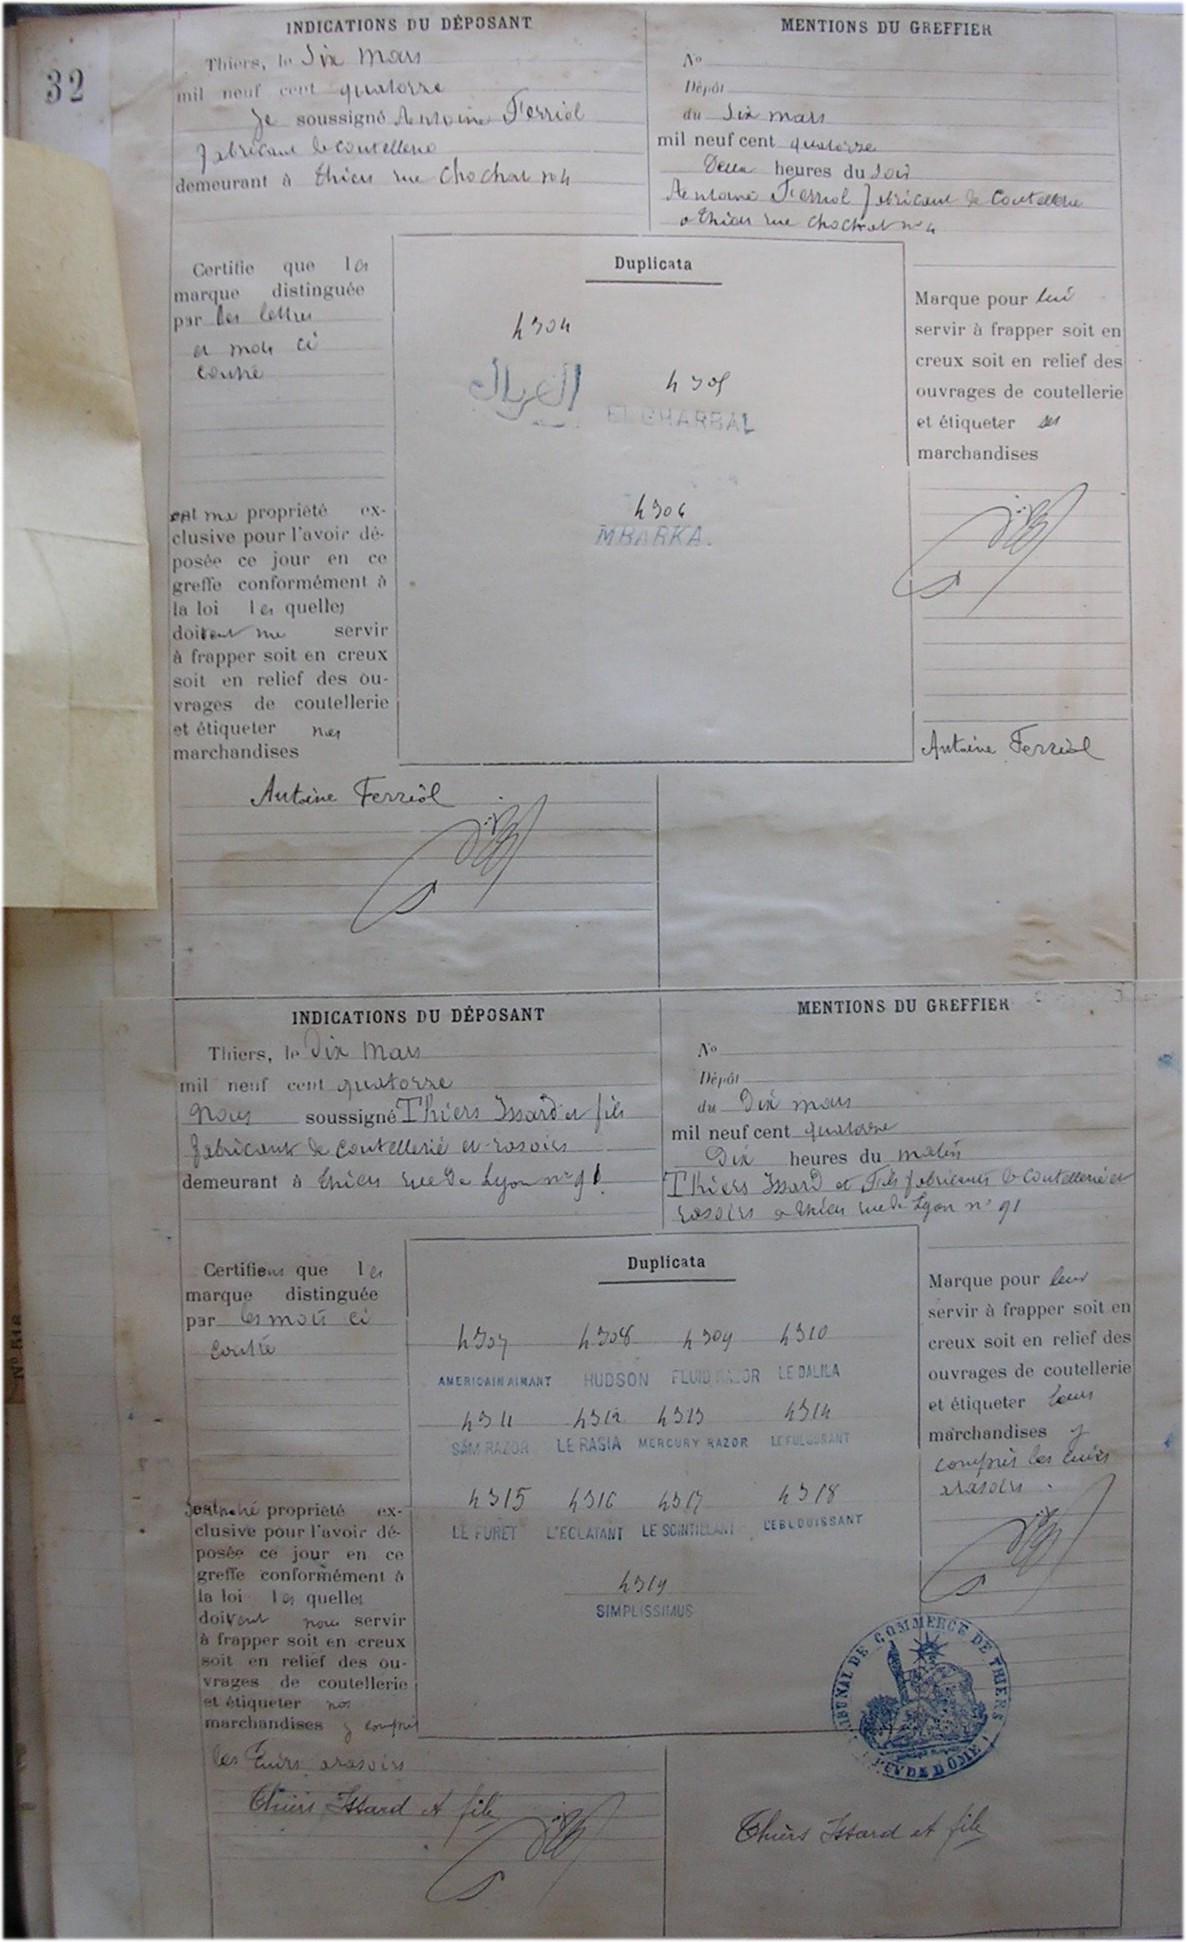 32
INDICATIONS DU DÉPOSANT
Thiers, le Dix Mars
mil neuf cent quatorze
Je soussigné Antoine Ferriol
fabricant de coutellerie
demeurant à Thiers rue Chochat n° 4
MENTIONS DU GREFFIER
N°
Dépôt
du Dix mars
mil neuf cent quatorze
Deux heures du soir
Antoine Ferriol fabricant de Coutellerie
a Thiers rue Chochat n° 4
Certifie que les
marque distinguée
par les lettres
et mots ci
contre
est ma propriété ex-
clusive pour l'avoir dé-
posée ce jour en ce
greffe conformément à
la loi les quelles
doivent me servir
à frapper soit en creux
soit en relief des ou-
vrages de coutellerie
et étiqueter mes
marchandises
Duplicata
4304
4305
EL GHARBAL
4306
MBARKA.
Marque pour lui
servir à frapper soit en
creux soit en relief des
ouvrages de coutellerie
et étiqueter ses
marchandises
Antoine Ferriol
Antoine Ferriol
INDICATIONS DU DÉPOSANT
Thiers, le Dix Mars
mil neuf cent quatorze
Nous soussigné Thiers Issard et fils
fabricants de coutellerie et rasoirs
demeurant à Thiers rue de Lyon n° 91
MENTIONS DU GREFFIER
N°
Dépôt
du Dix mars
mil neuf cent quatorze
Dix heures du matin
Thiers Issard et Fils fabricants de coutellerie et
rasoirs a Thiers rue de Lyon n° 91
Certifiens que les
marque distinguée
par les mots ci
contre
propriété ex-
clusive pour l'avoir dé-
posée ce jour en ce
greffe conformément à
la loi les quelles
doivent nous servir
à frapper soit en creux
soit en relief des ou-
vrages de coutellerie
et étiqueter nos
marchandises y compris
les cuirs a rasoirs
Duplicata
4307 4308 4309 4310
AMERICAIN AIMANT HUDSON FLUID RAZOR LE DALILA
4311 4312 4313 4314
SAM RAZOR LE RASIA MERCURY RAZOR LE FULGURANT
4315 4316 4317 4318
LE FURET L'ECLATANT LE SCINTILLANT L'EBLOUISSANT
4319
SIMPLISSIMUS
Marque pour leur
servir à frapper soit en
creux soit en relief des
ouvrages de coutellerie
et étiqueter leurs
marchandises y
compris les cuirs
a rasoirs.
TRIBUNAL DE COMMERCE DE THIERS
(PUY DE DOME)
Thiers Issard et fils
Thiers Issard et fils
N° 518